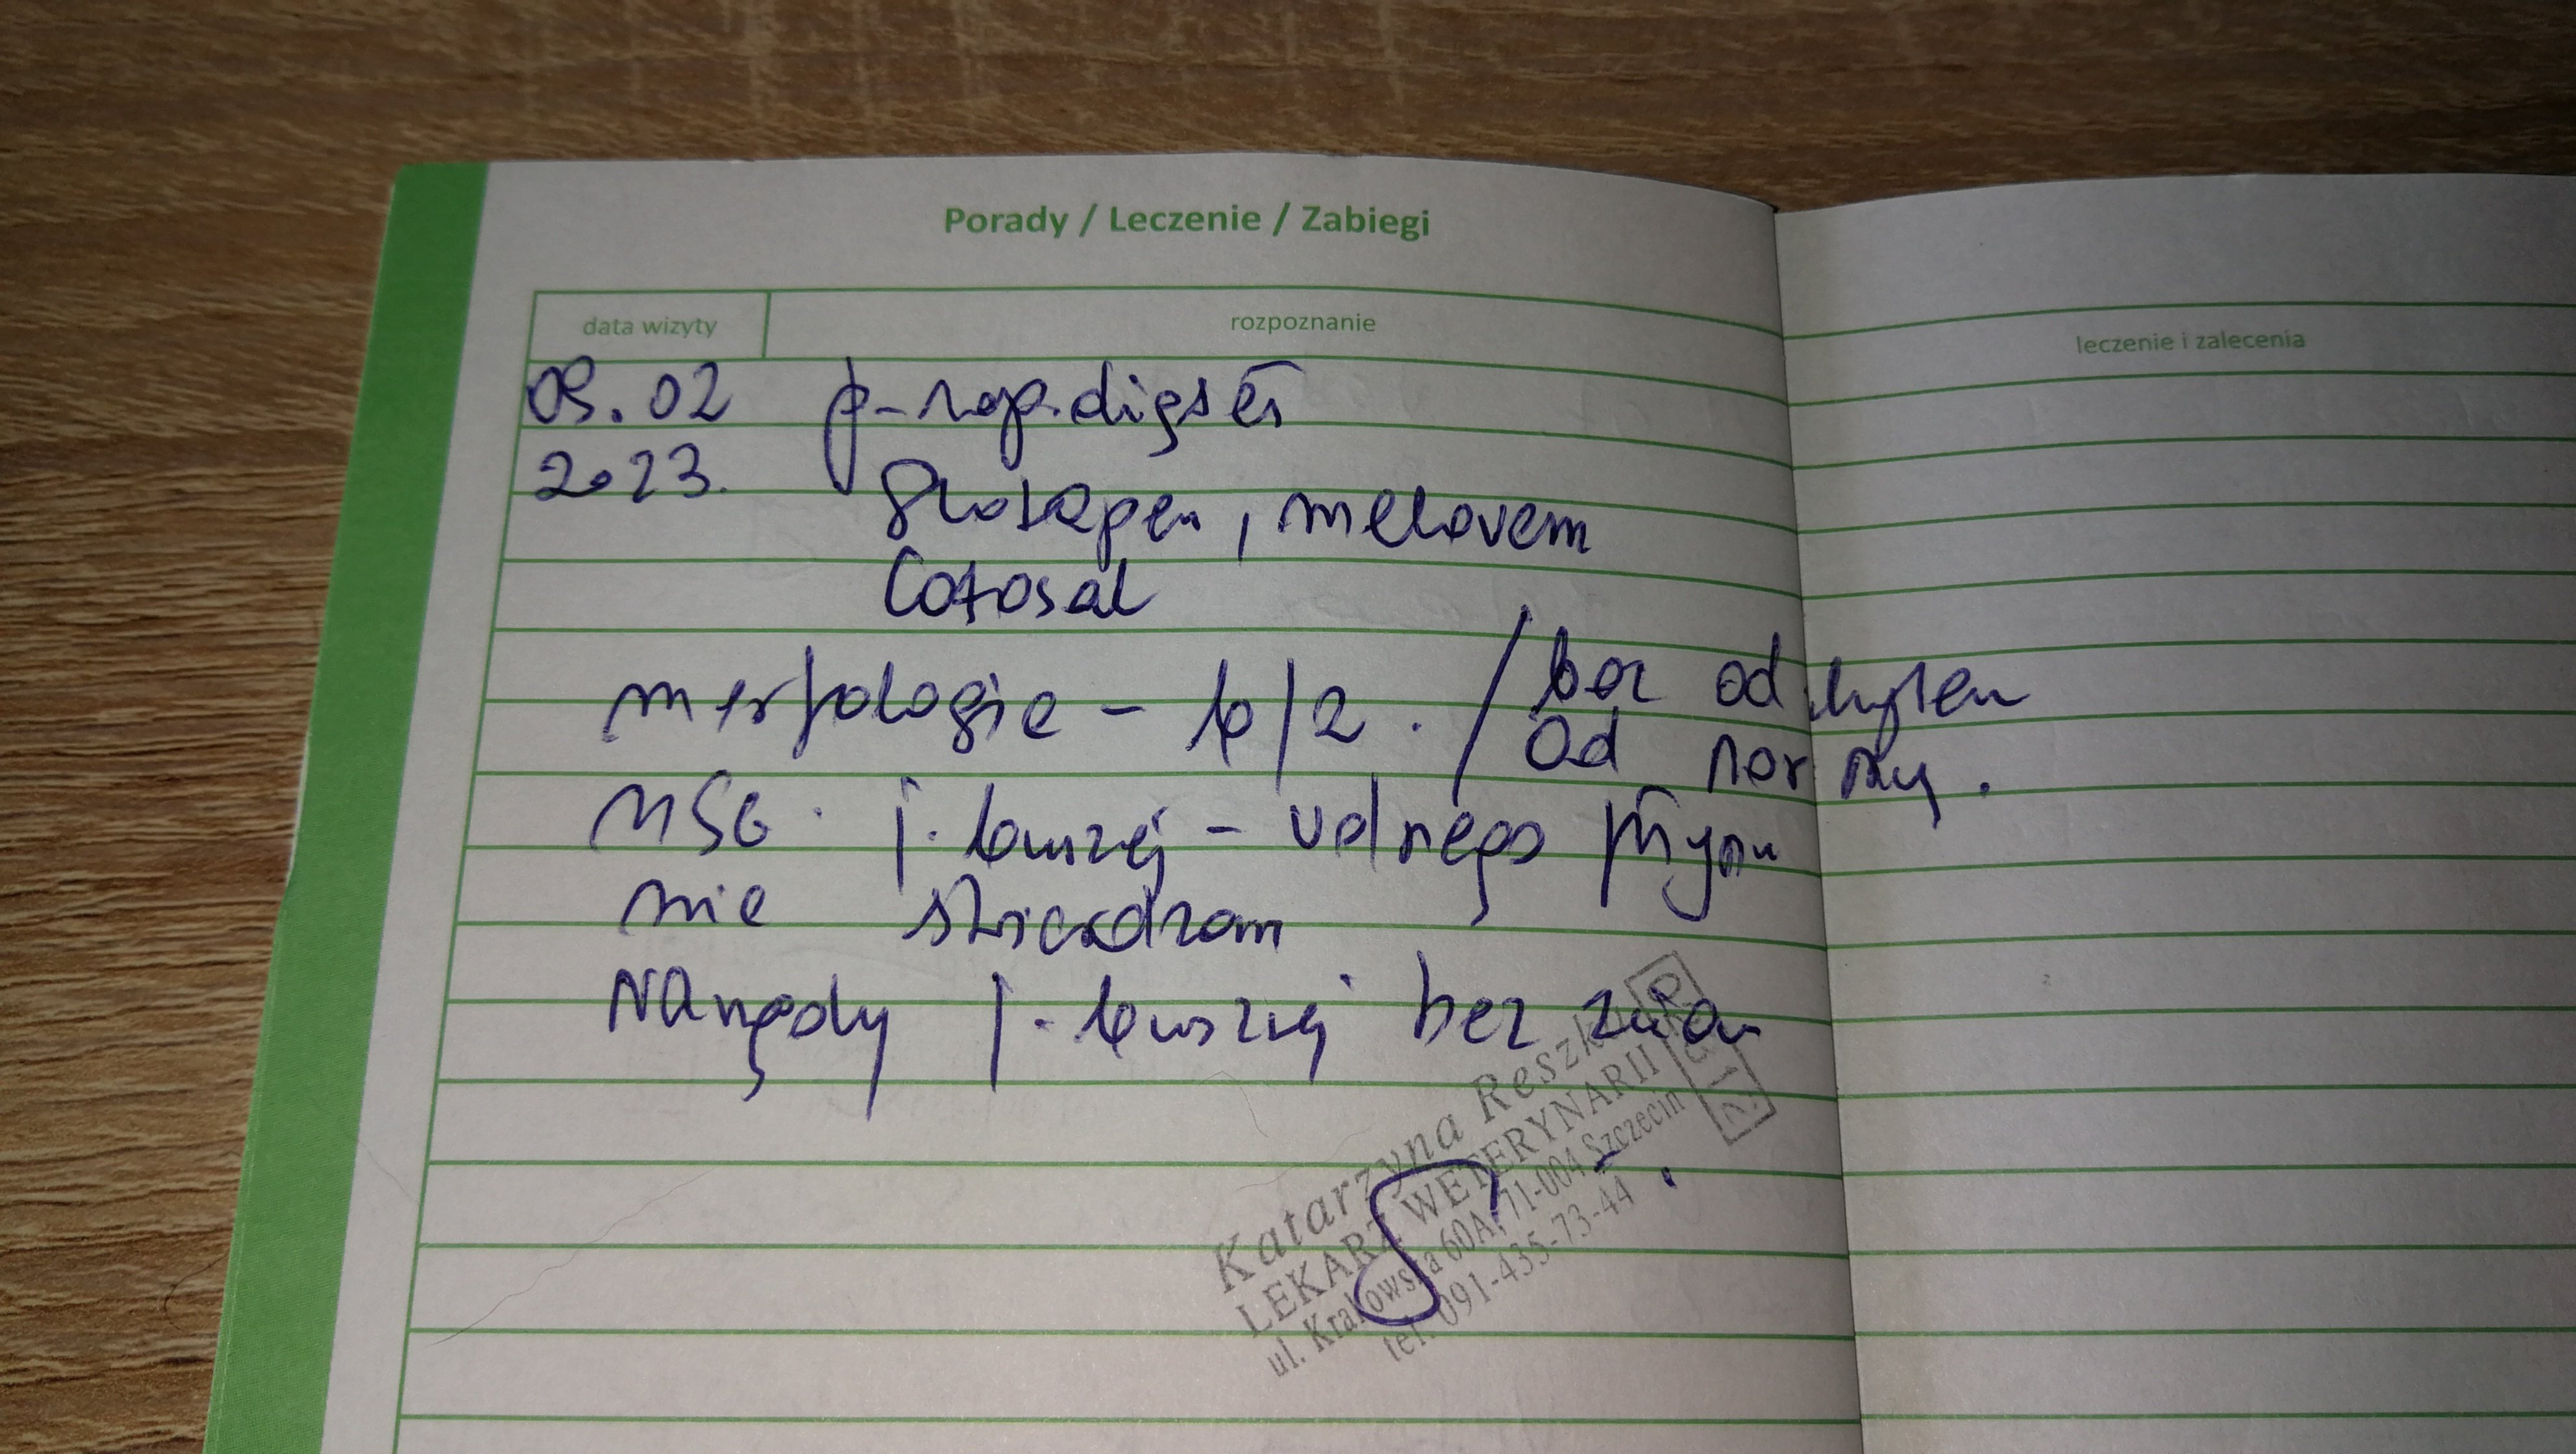 Porady / Leczenie / Zabiegi
data wizyty rozpoznanie leczenie i zalecenia
02
2023.
, melovem
Catosal
morfologie - b/z . / bez odchyleń
od normy.
USG j. brzusznej - wolnego płynu
nie stwierdzam
Narządy j. brzusznej bez zmian
Katarzyna Reszka
LEKARZ WETERYNARII
ul. Krakowska 60A, 71-004 Szczecin
tel. 091-435-73-44